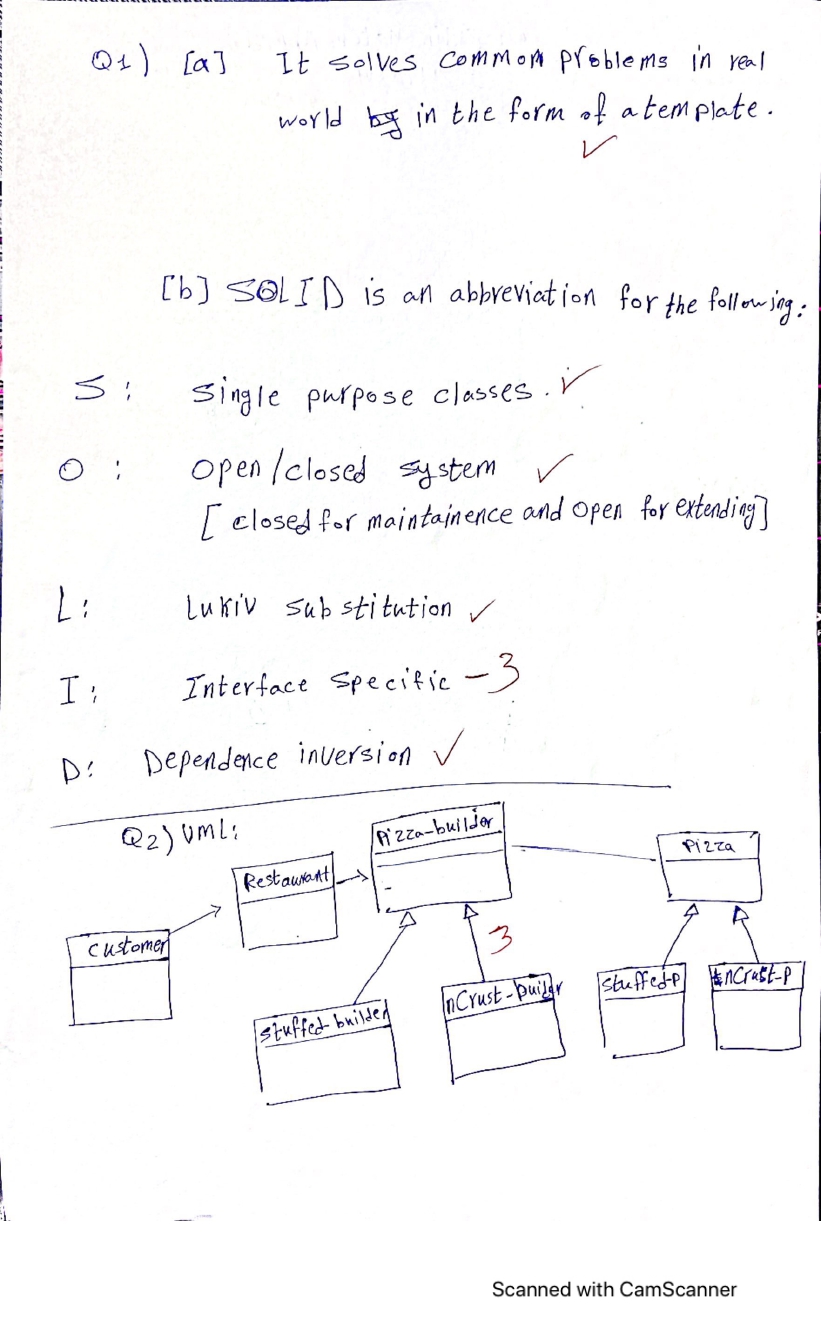 Q1) [a] It solves common problems in real
world in the form of a template.
[b] SOLID is an abbreviation for the following:
S: Single purpose classes.
O: open/closed system
[closed for maintainence and open for extending]
L: Lukiv substitution
I: Interface specific -3
D: Dependence inversion
Q2) UML:
Pizza-builder
Pizza
Restaurant
-
customer
3
stuffed-builder
nCrust-builder
stuffed-P
nCrust-P
Scanned with CamScanner